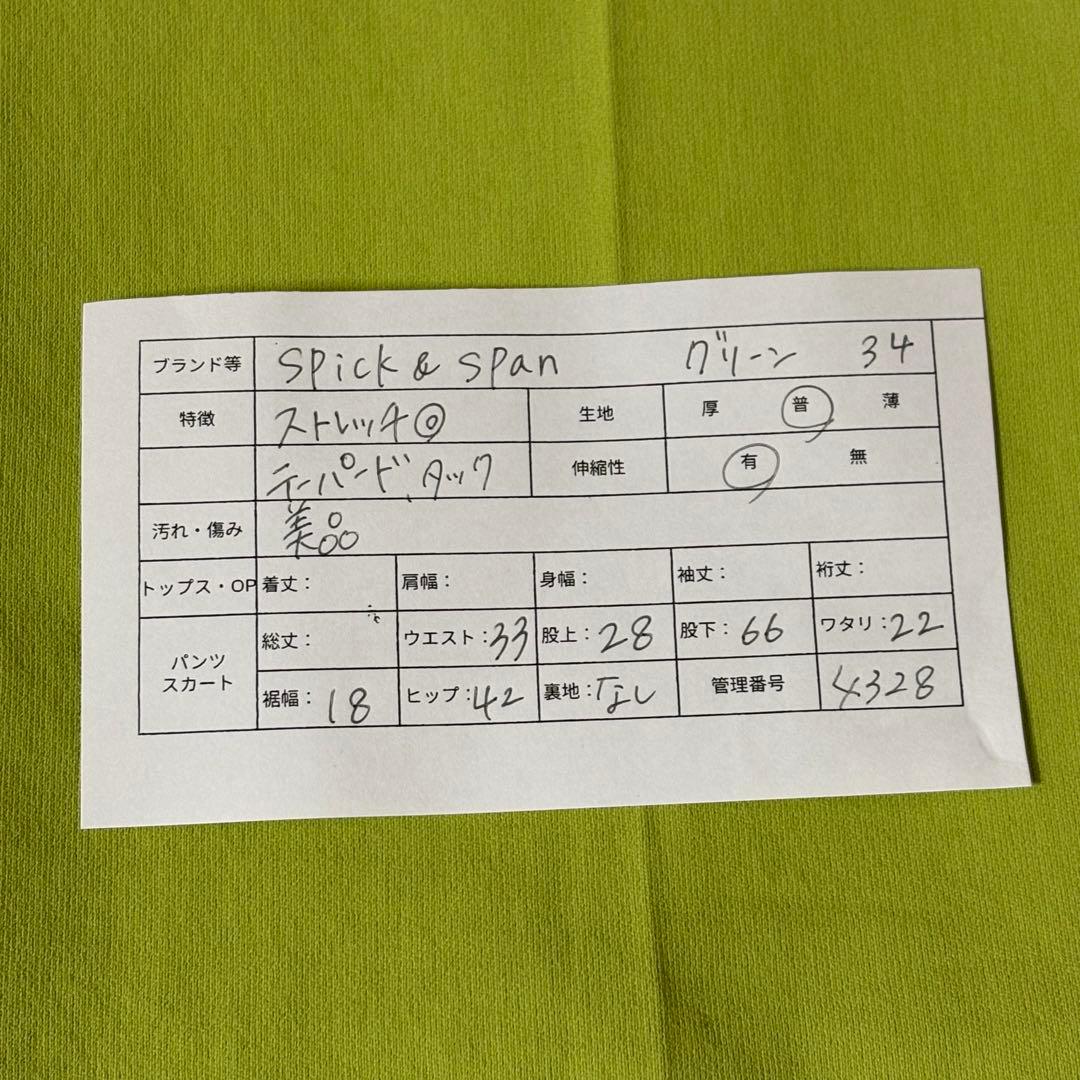 ブランド等 spick & span グリーン 34
特徴 ストレッチ◎ 生地 厚 普 薄
テーパード、タック 伸縮性 有 無
汚れ・傷み 美品
トップス・OP 着丈： 肩幅： 身幅： 袖丈： 裄丈：
パンツ スカート 総丈： ウエスト：33 股上：28 股下：66 ワタリ：22
裾幅：18 ヒップ：42 裏地：なし 管理番号 4328